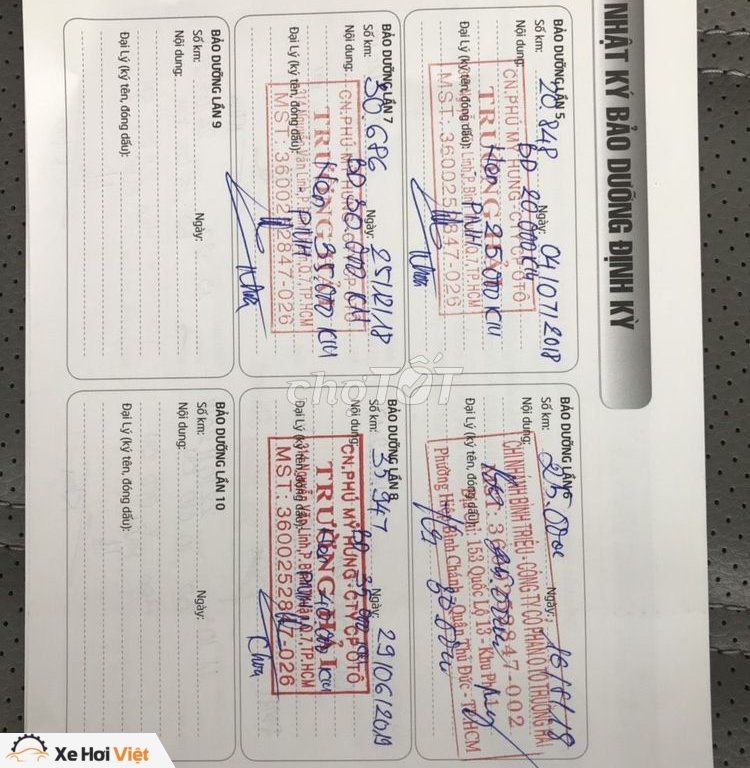 NHẬT KÝ BẢO DƯỠNG ĐỊNH KỲ
BẢO DƯỠNG LẦN 5
Số km: 20.848 Ngày: 04/07/2018
Nội dung: BD 20.000 KM
CN.PHÚ MỸ HƯNG-CTY CP ÔTÔ
TRƯỜNG HẢI
Hẹn 25.000 KM
Đại Lý (ký tên, đóng dấu):
PMH
Linh, P. Q.7, TP.HCM
MST: 3600252847-026
BẢO DƯỠNG LẦN 6
Số km: 25.000 Ngày: 18/8/18
Nội dung:
CHI NHÁNH BÌNH TRIỆU - CÔNG TY CỔ PHẦN Ô TÔ TRƯỜNG HẢI
847-002
Đại Lý (ký tên, đóng dấu):
153 Quốc Lộ 13 - Khu Phố
Phường Hiệp Bình Chánh - Quận Thủ Đức - TP.HCM
BẢO DƯỠNG LẦN 7
Số km: 30.686 Ngày: 25/12/18
Nội dung: BD 30.000 KM
CN.PHÚ MỸ HƯNG-CTY CP ÔTÔ
TRƯỜNG HẢI
Hẹn 35.000 KM
Đại Lý (ký tên, đóng dấu):
PMH
Văn Linh, P. Q.7, TP.HCM
MST: 3600252847-026
BẢO DƯỠNG LẦN 8
Số km: 35.947 Ngày: 29/06/2019
Nội dung: BD 35.000 KM
CN.PHÚ MỸ HƯNG-CTY CP ÔTÔ
TRƯỜNG HẢI
Hẹn 40.000 KM
Đại Lý (ký tên, đóng dấu):
Nguyễn Văn Linh, P. Q.7, TP.HCM
MST: 3600252847-026
BẢO DƯỠNG LẦN 9
Số km: Ngày:
Nội dung:
Đại Lý (ký tên, đóng dấu):
BẢO DƯỠNG LẦN 10
Số km: Ngày:
Nội dung:
Đại Lý (ký tên, đóng dấu):
chợTỐT
Xe Hơi Việt